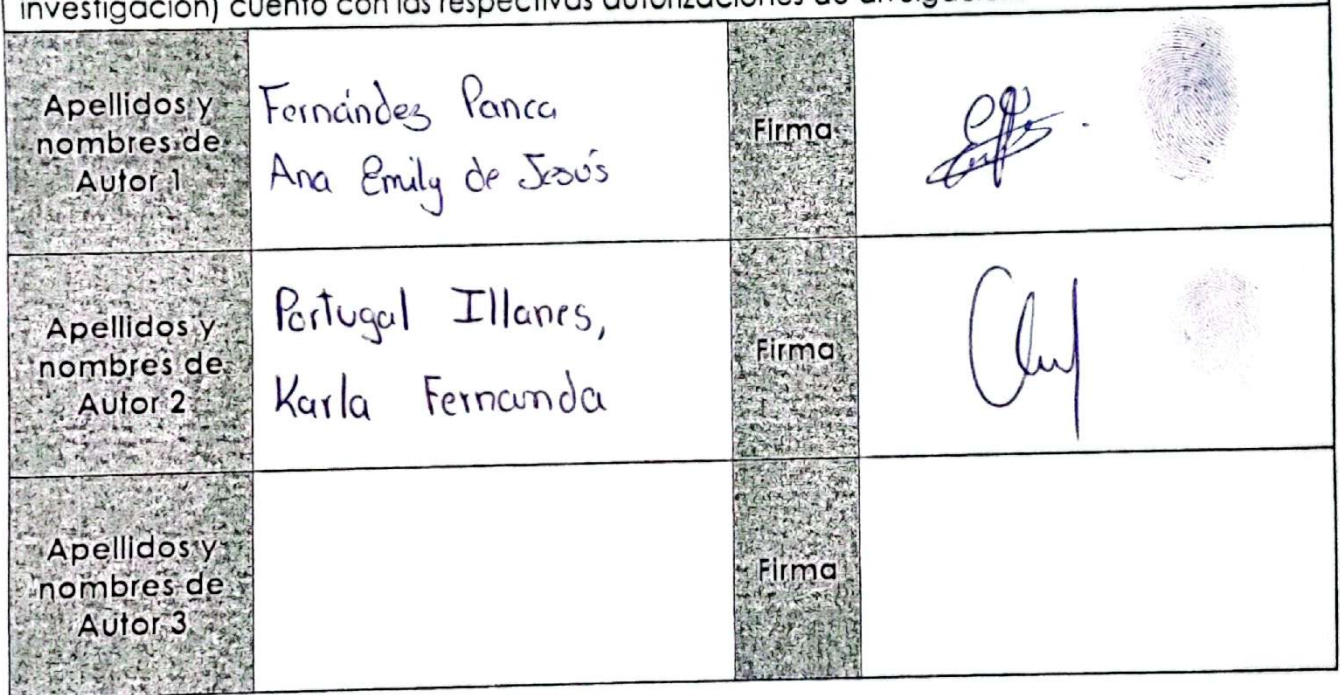 investigación) cuento con las respectivas autorizaciones de
Apellidos y
nombres de
Autor 1
Fernández Panca
Ana Emily de Jesús
Firma
Apellidos y
nombres de
Autor 2
Portugal Illanes,
Karla Fernanda
Firma
Apellidos y
nombres de
Autor 3
Firma